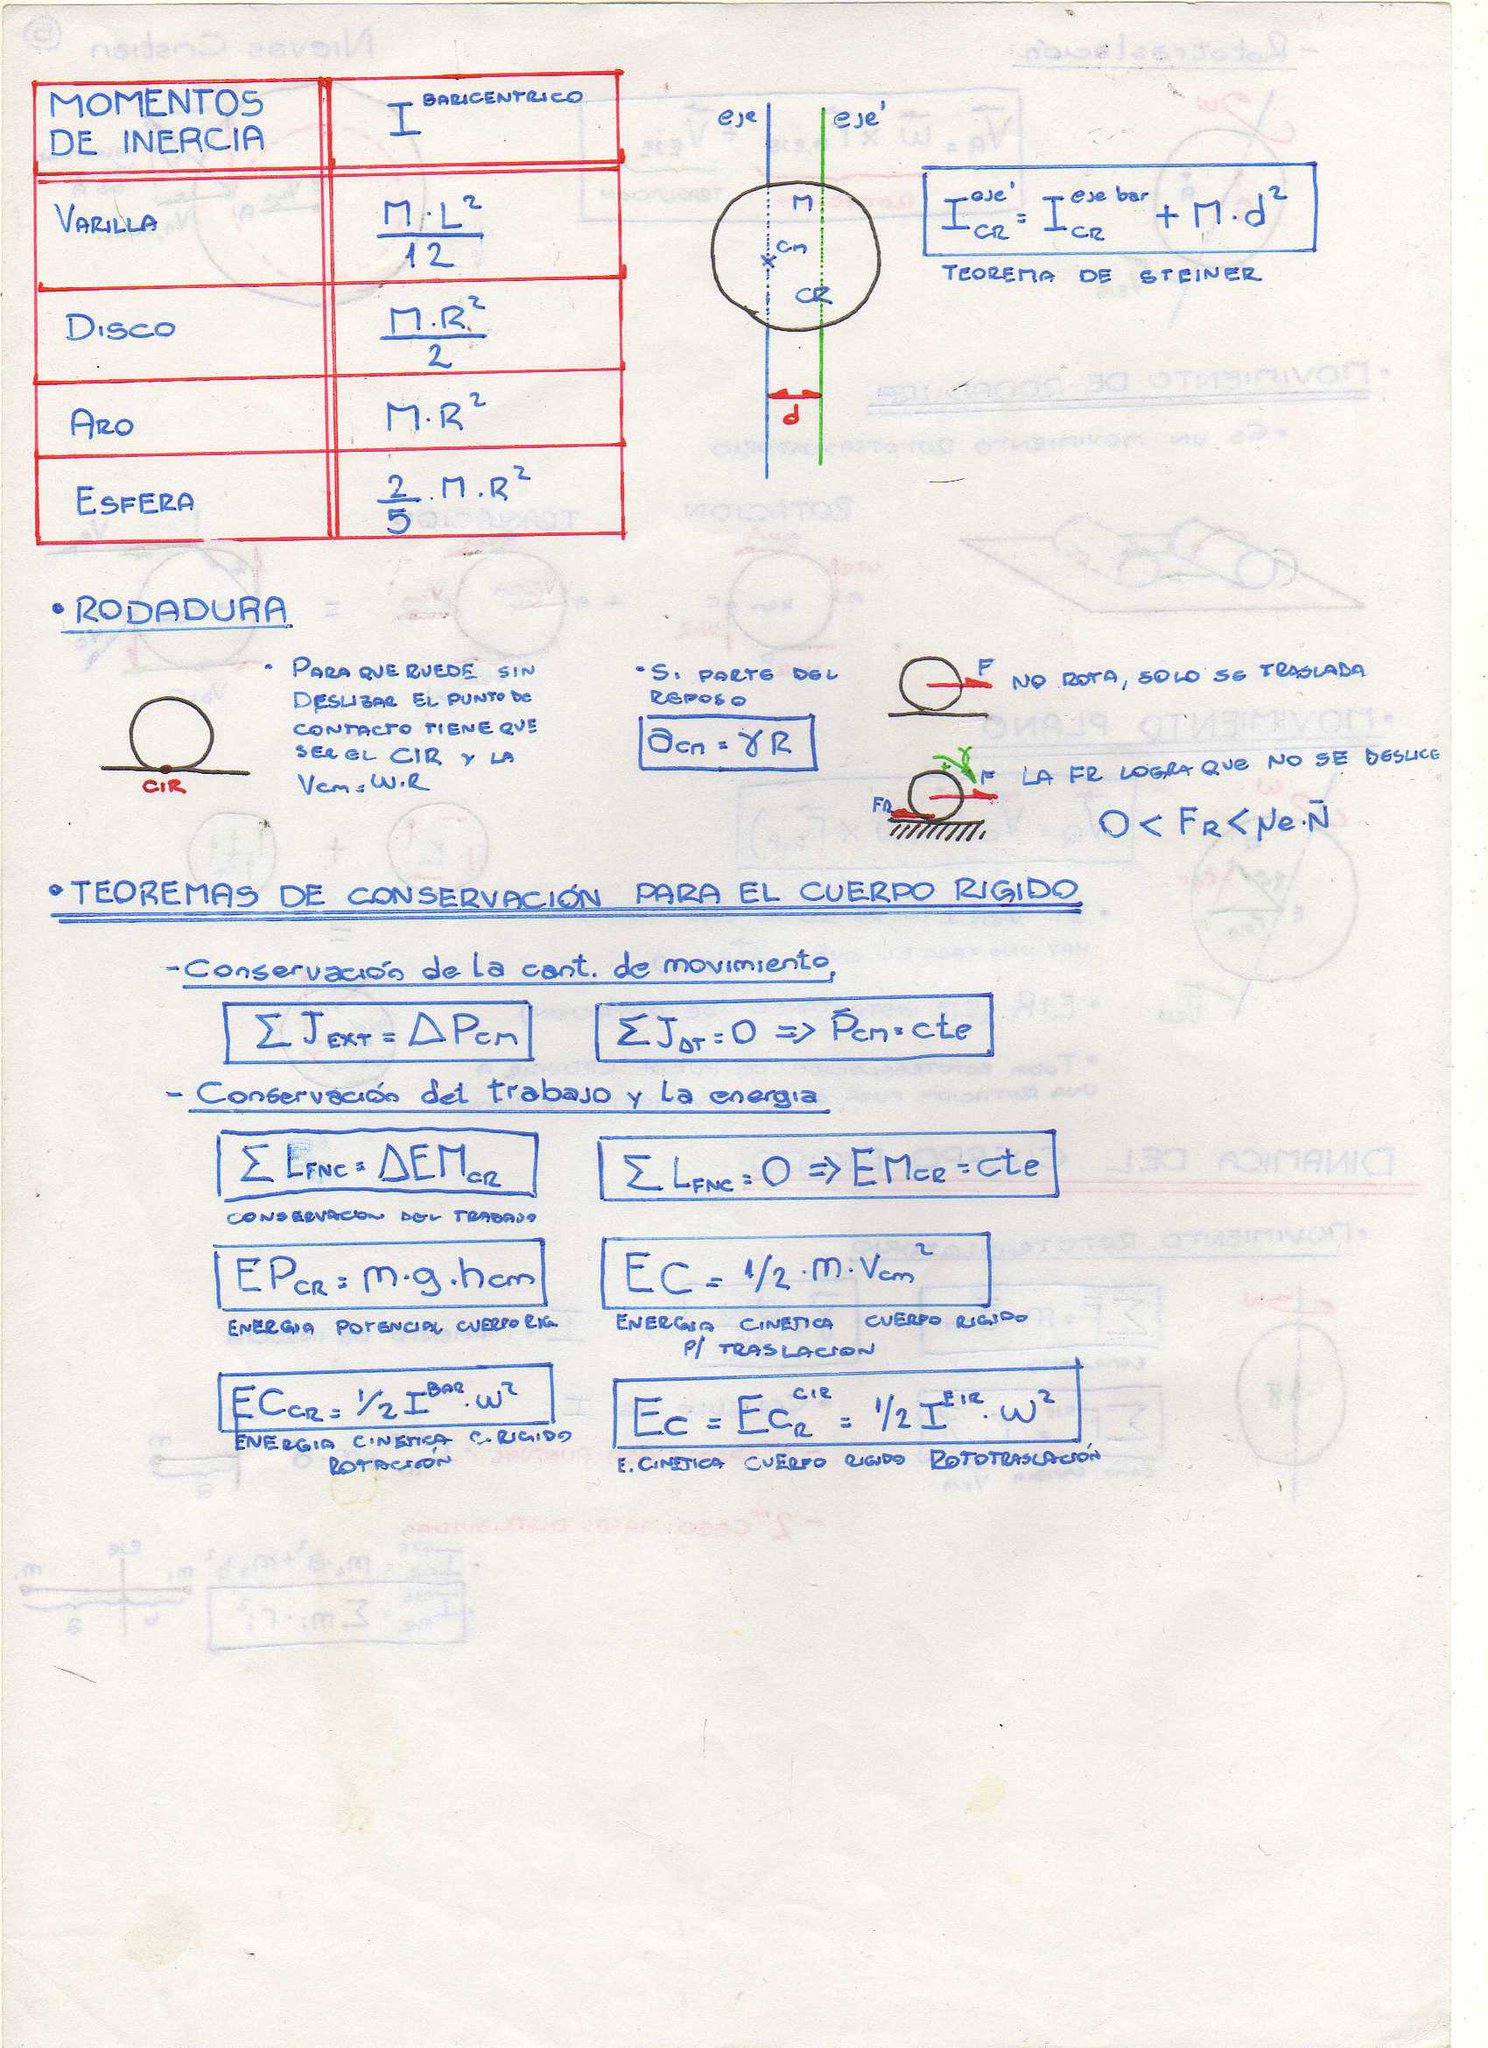 MOMENTOS DE INERCIA
I BARICENTRICO
VARILLA
M·L²/12
DISCO
M·R²/2
ARO
M·R²
ESFERA
2/5 · M·R²
eje
eje'
M
Cm
CR
d
I_CR^eje' = I_CR^eje bar + M·d²
TEOREMA DE STEINER
• RODADURA
CIR
• PARA QUE RUEDE SIN
DESLIZAR EL PUNTO DE
CONTACTO TIENE QUE
SER EL CIR Y LA
Vcm = ω·R
• Si PARTE DEL
REPOSO
acm = γR
F
NO ROTA, SOLO SE TRASLADA
γ
F
FR
LA FR LOGRA QUE NO SE DESLICE
0 < FR < μe·N̄
• TEOREMAS DE CONSERVACIÓN PARA EL CUERPO RIGIDO
- Conservación de la cant. de movimiento
∑ J_EXT = Δ Pcm
∑ J_DT = 0 => P̄cm = cte
- Conservación del trabajo y la energia
∑ L_FNC = ΔEM_CR
∑ L_FNC = 0 => EM_CR = cte
CONSERVACION DEL TRABAJO
EP_CR = m·g·hcm
EC = 1/2 · m · Vcm²
ENERGIA POTENCIAL CUERPO RIG
ENERGIA CINETICA CUERPO RIGIDO
P/ TRASLACION
EC_CR = 1/2 I^BAR · ω²
Ec = Ec_R^CIR = 1/2 I^EIR · ω²
ENERGIA CINETICA C. RIGIDO
ROTACIÓN
E. CINETICA CUERPO RIGIDO ROTOTRASLACIÓN